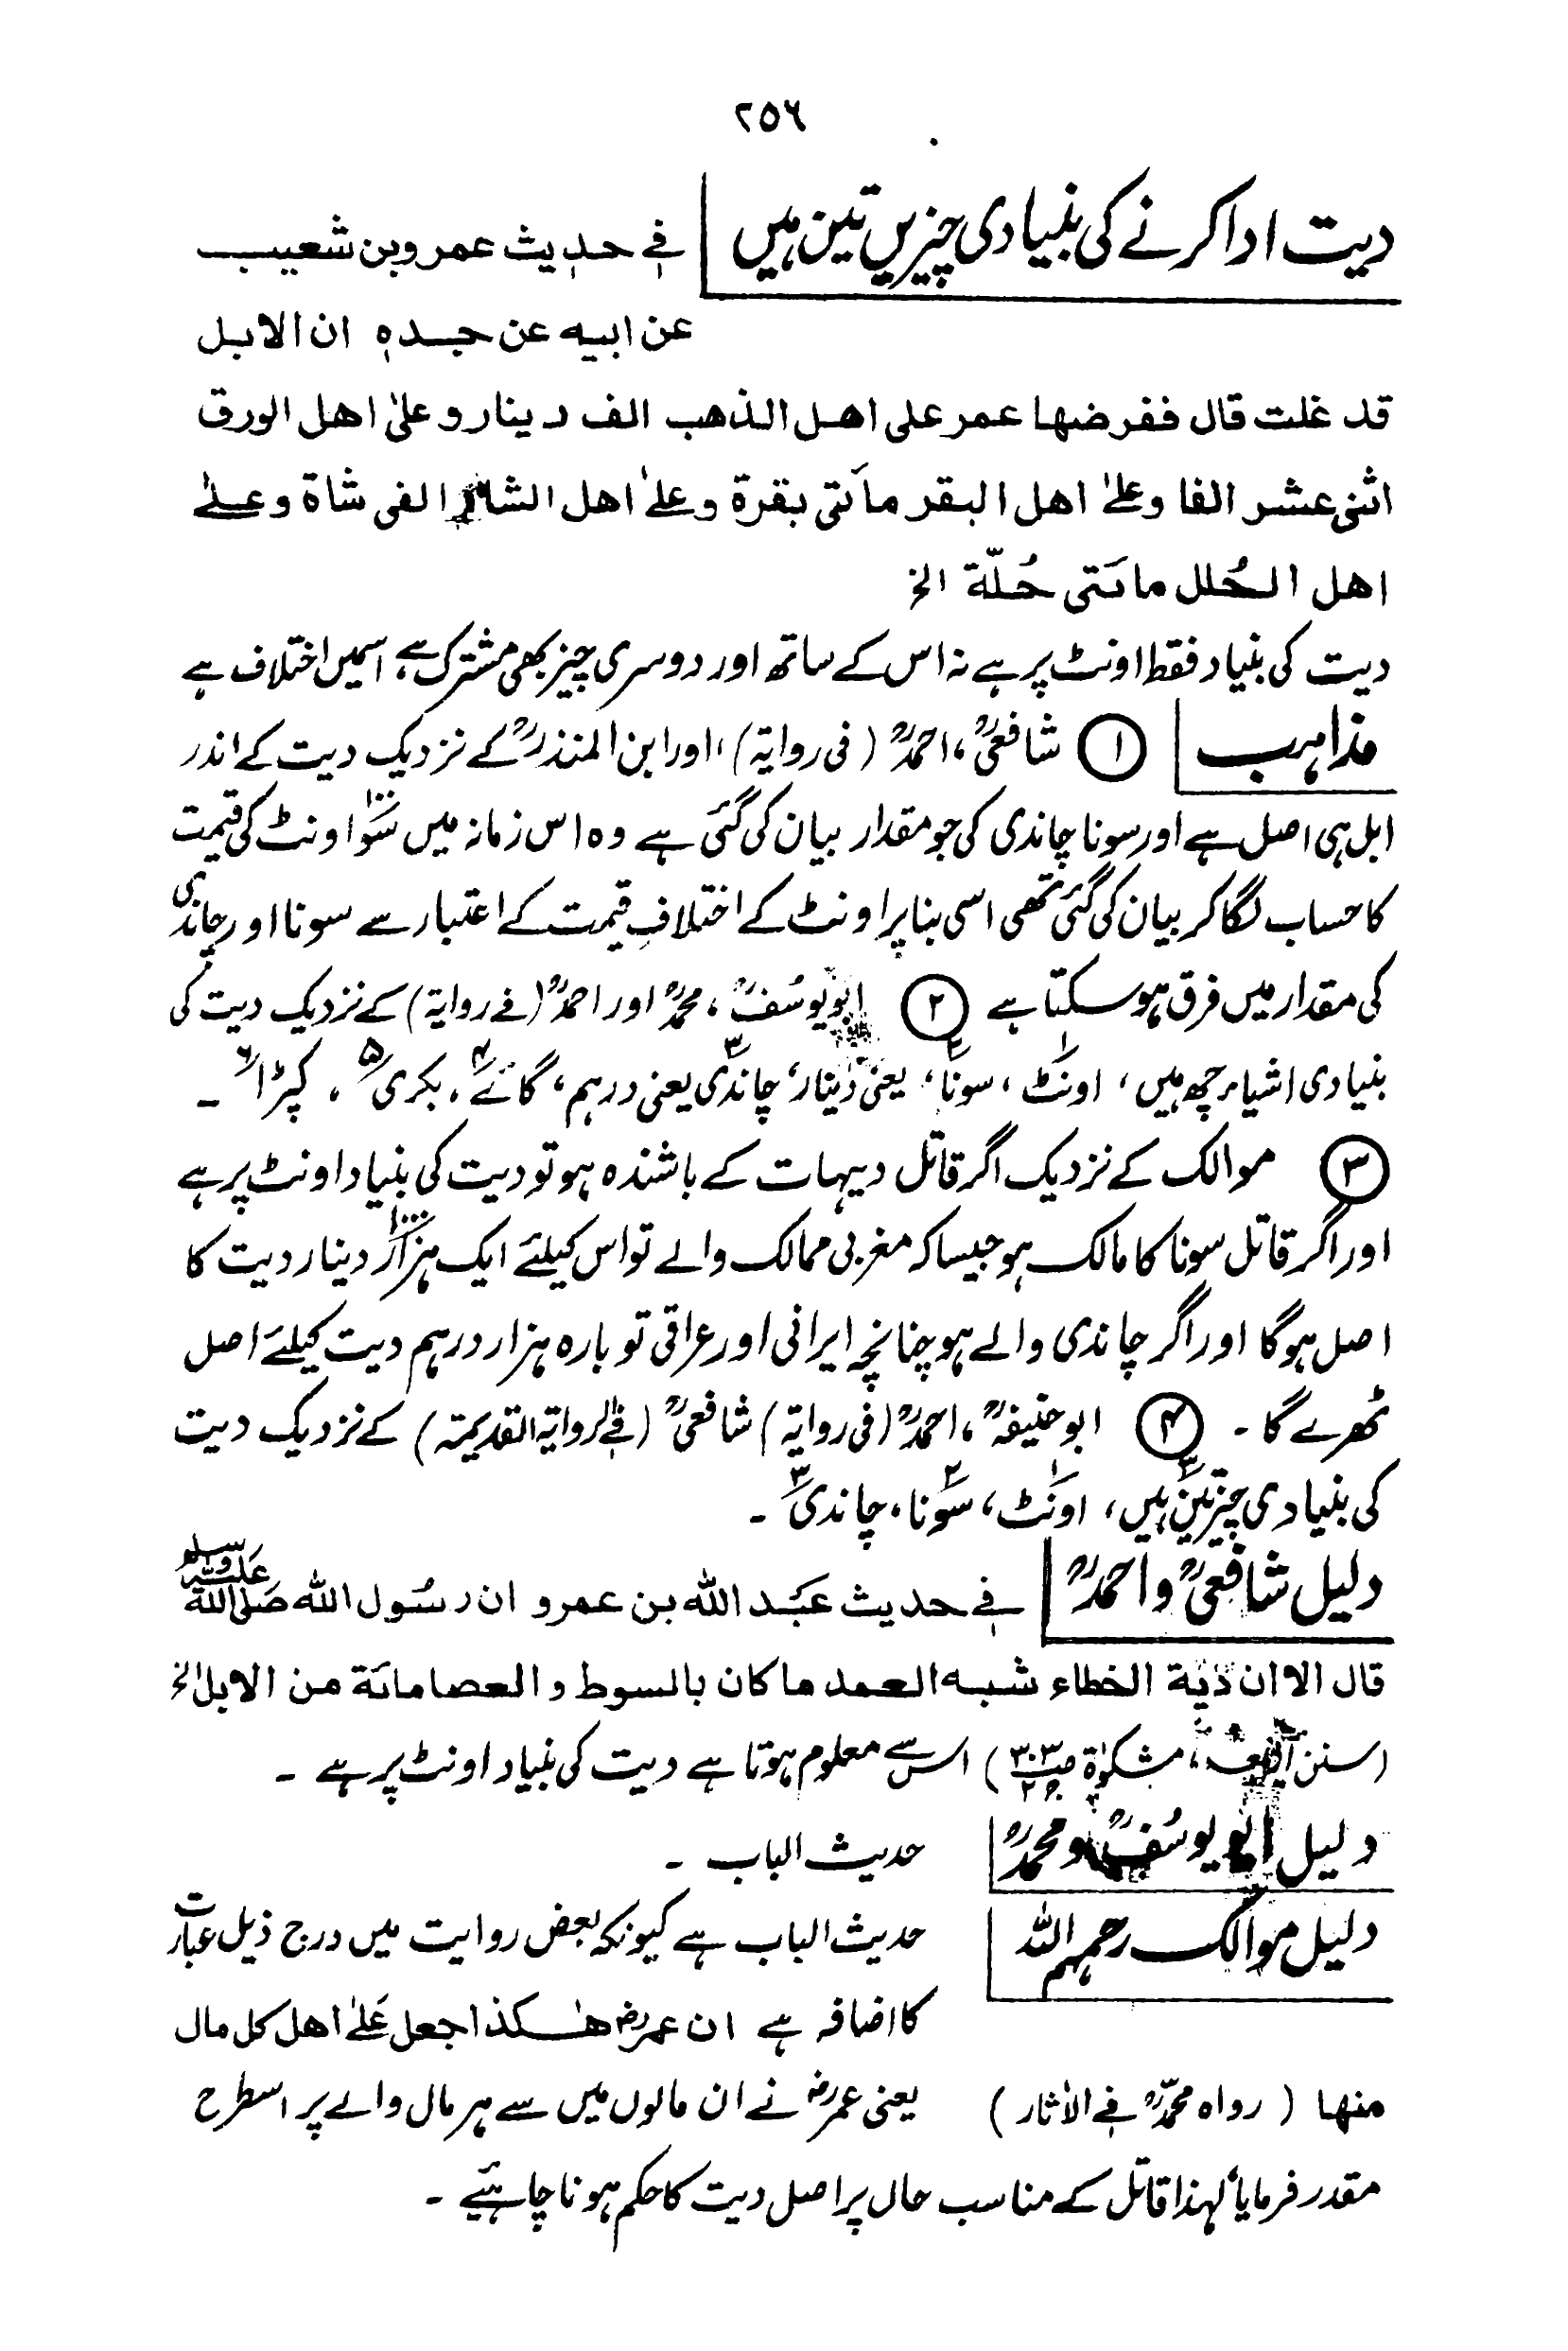 ۲۵٦
دیت ادا کرنے کی بنیادی چیزیں تین ہیں فے حدیث عمرو بن شعیب
عن ابیه عن جده ان الابل
قد غلت قال ففرضها عمر علی اهل الذهب الف دینار و علیٰ اهل الورق
اثنی عشر الفا وعلیٰ اهل البقر مأتی بقرة وعلیٰ اهل الشاة الفی شاة وعلیٰ
اهل الحُلل مائتی حُلّة الخ
دیت کی بنیاد فقط اونٹ پر ہے نہ اس کے ساتھ اور دوسری چیز بھی مشترک ہے، اسمیں اختلاف ہے
مذاہب ① شافعیؒ، احمدؒ (فی روایۃ)، اور ابن المنذرؒ کے نزدیک دیت کے اندر
ابل ہی اصل ہے اور سونا چاندی کی جو مقدار بیان کی گئی ہے وہ اس زمانہ میں سَو۱۰۰ اونٹ کی قیمت
کا حساب لگا کر بیان کی گئی تھی اسی بنا پر اونٹ کے اختلافِ قیمت کے اعتبار سے سونا اور چاندی
کی مقدار میں فرق ہو سکتا ہے ② ابو یوسُفؒ، محمدؒ اور احمدؒ (فے روایۃ) کے نزدیک دیت کی
بنیادی اشیاء چھ ہیں، اونٹ۱، سونا۲، یعنی دینار، چاندی۳ یعنی درہم، گائے۴، بکری۵، کپڑا۶ ۔
③ موالک کے نزدیک اگر قاتل دیہات کے باشندہ ہو تو دیت کی بنیاد اونٹ پر ہے
اور اگر قاتل سونا کا مالک ہو جیسا کہ مغربی ممالک والے تو اس کیلئے ایک ہزار۱۰۰۰ دینار دیت کا
اصل ہوگا اور اگر چاندی والے ہو چنانچہ ایرانی اور عراقی تو بارہ ہزار درہم دیت کیلئے اصل
ٹھرے گا ۔ ④ ابو حنیفہؒ، احمدؒ (فی روایۃ) شافعیؒ (فے الروایۃ القدیمۃ) کے نزدیک دیت
کی بنیادی چیز تین۳ ہیں، اونٹ۱، سونا۲، چاندی۳ ۔
دلیل شافعیؒ واحمدؒ فے حدیث عبد الله بن عمرو ان رسُول الله صلی الله علیه وسلم
قال الا ان دیة الخطاء شبه العمد ما کان بالسوط و العصا مائة من الابل الخ
(سنن اربعہ، مشکوٰۃ ص۳۰۳ ج۲) اس سے معلوم ہوتا ہے دیت کی بنیاد اونٹ پر ہے ۔
دلیل ابو یوسُفؒ و محمدؒ حدیث الباب ۔
دلیل موالک رحمہم اللہ حدیث الباب ہے کیونکہ بعض روایت میں درج ذیل عبارت
کا اضافہ ہے ان عمرؓ هٰکذا جعل عَلیٰ اهل کل مال
منها (رواہ محمدؒ فے الاٰثار) یعنی عمرؓ نے ان مالوں میں سے ہر مال والے پر اسطرح
مقدر فرمایا، لہذا قاتل کے مناسب حال پر اصل دیت کا حکم ہونا چاہئیے ۔